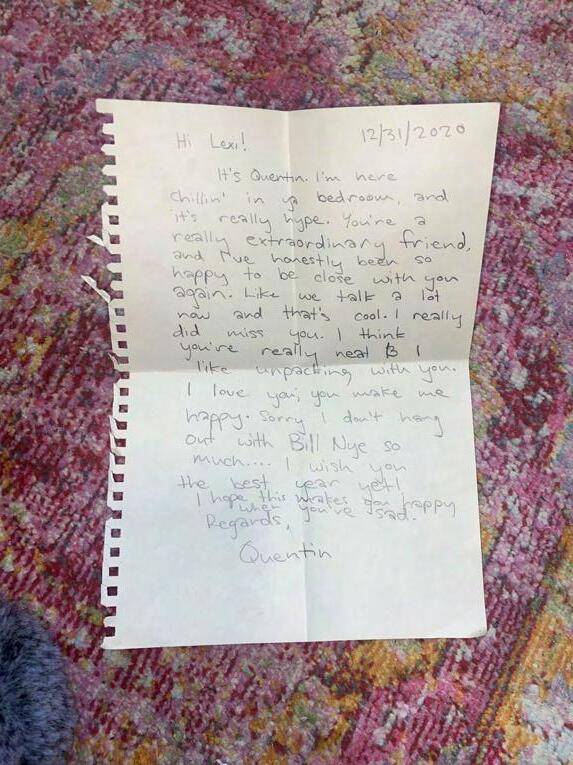 12/31/2020
Hi Lexi!
It's Quentin. I'm here
chillin' in ya bedroom, and
it's really hype. You're a
really extraordinary friend,
and I've honestly been so
happy to be close with you
again. Like we talk a lot
now and that's cool. I really
did miss you. I think
you're really neat & I
like unpacking with you.
I love you; you make me
happy. Sorry I don't hang
out with Bill Nye so
much.... I wish you
the best year yet!
I hope this makes you happy
when you're sad.
Regards,
Quentin